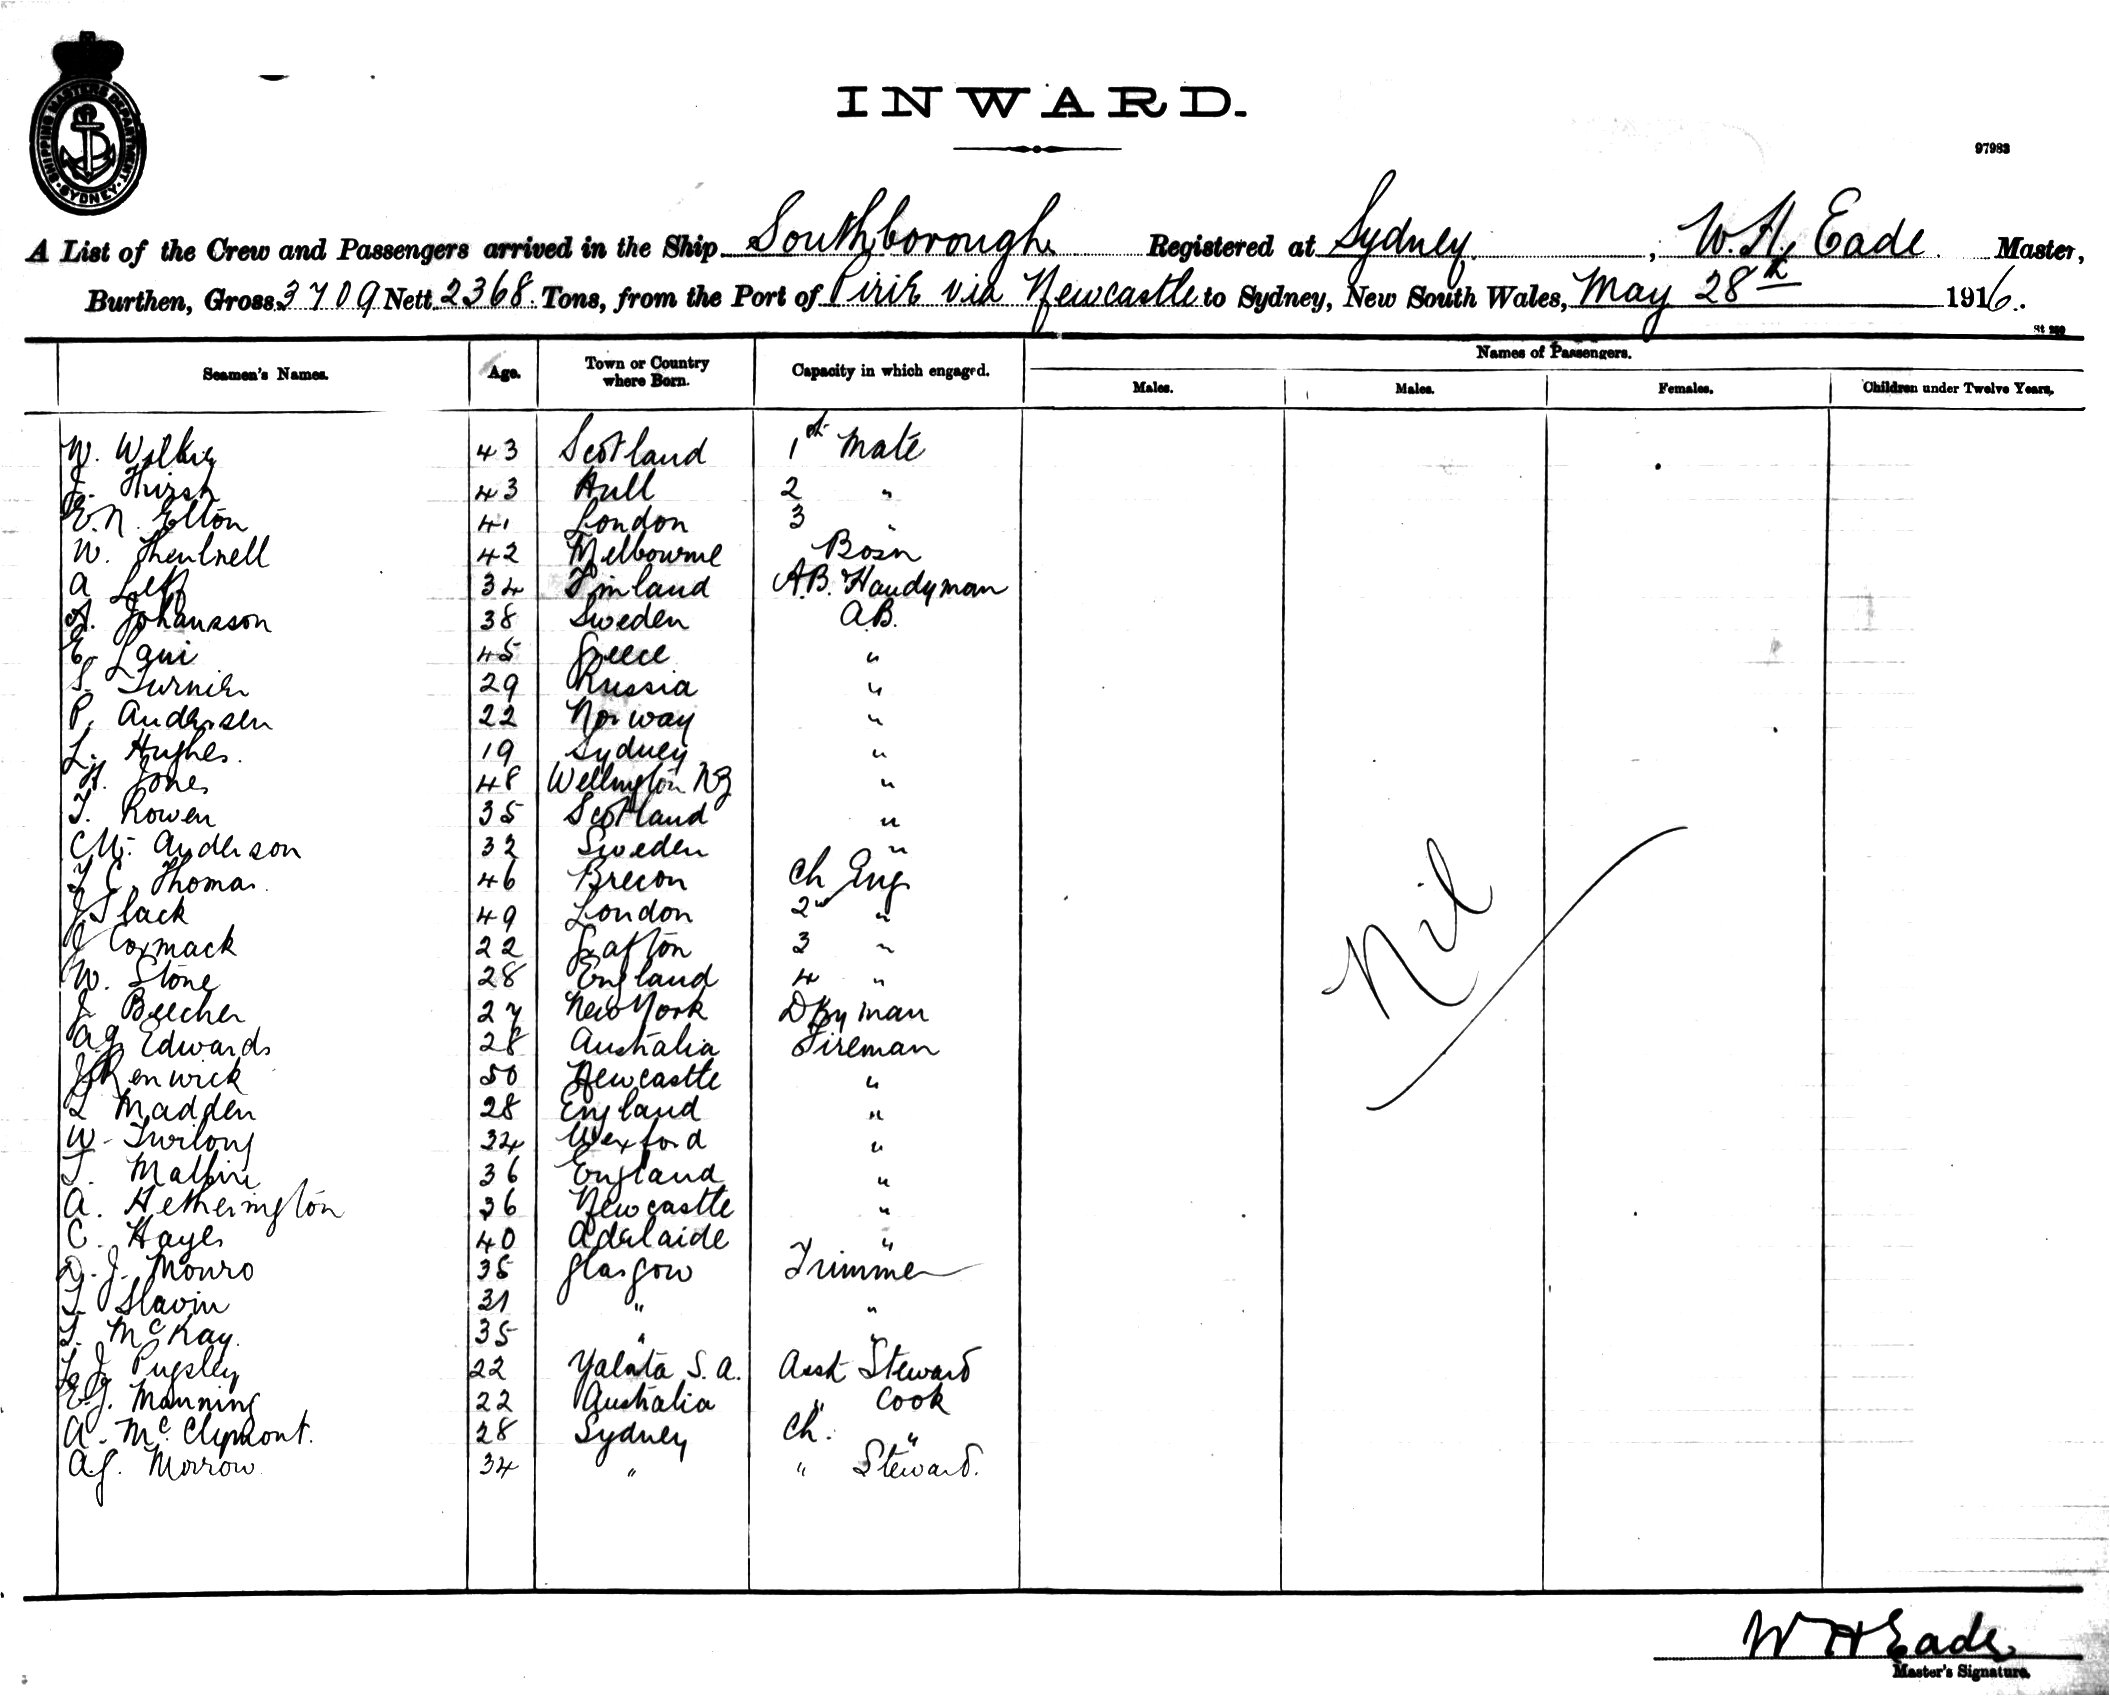 SHIPPING MASTERS DEPARTMENT SYDNEY
INWARD.
97983
A List of the Crew and Passengers arrived in the Ship Southborough Registered at Sydney, W. H. Eade Master,
Burthen, Gross 3709 Nett 2368 Tons, from the Port of Pirie via Newcastle to Sydney, New South Wales, May 28th 1916.
Names of Passengers.
Seamen's Names. Age. Town or Country where Born. Capacity in which engaged. Males. Males. Females. Children under Twelve Years.
W. Wilkie 43 Scotland 1st Mate
J. Hirst 43 Hull 2 "
E. N. Elton 41 London 3 "
W. 42 Melbourne Bosn
A 34 Finland A.B. Handyman
A. Johansson 38 Sweden A.B.
E. Laui 45 Greece "
S. 29 Russia "
P. Andersen 22 Norway "
L. Hughes. 19 Sydney "
H. Jones 48 Wellington NZ "
T. Rowen 35 Scotland "
Anderson 32 Sweden "
Thomas. 46 Brecon Ch Eng
J Slack 49 London 2 "
J Cormack 22 Grafton 3 "
W. Stone 28 England 4 "
J. Beecher 27 New York Dky man
A.G. Edwards 28 Australia Fireman
J Renwick 50 Newcastle "
L Madden 28 England "
W. 34 Wexford "
T. 36 England "
A. Hetherington 36 Newcastle "
C. Hayes 40 Adelaide "
D. J. Monro 35 Glasgow Trimmer
T. Slavin 31 " "
T. McKay. 35 " "
L. J. Pugsley 22 Yalata S.A. Asst Steward
E. J. Manning 22 Australia " Cook
A. McClymont. 28 Sydney Ch. "
A.J. Morrow 34 " " Steward.
Nil
W H Eade
Master's Signature.